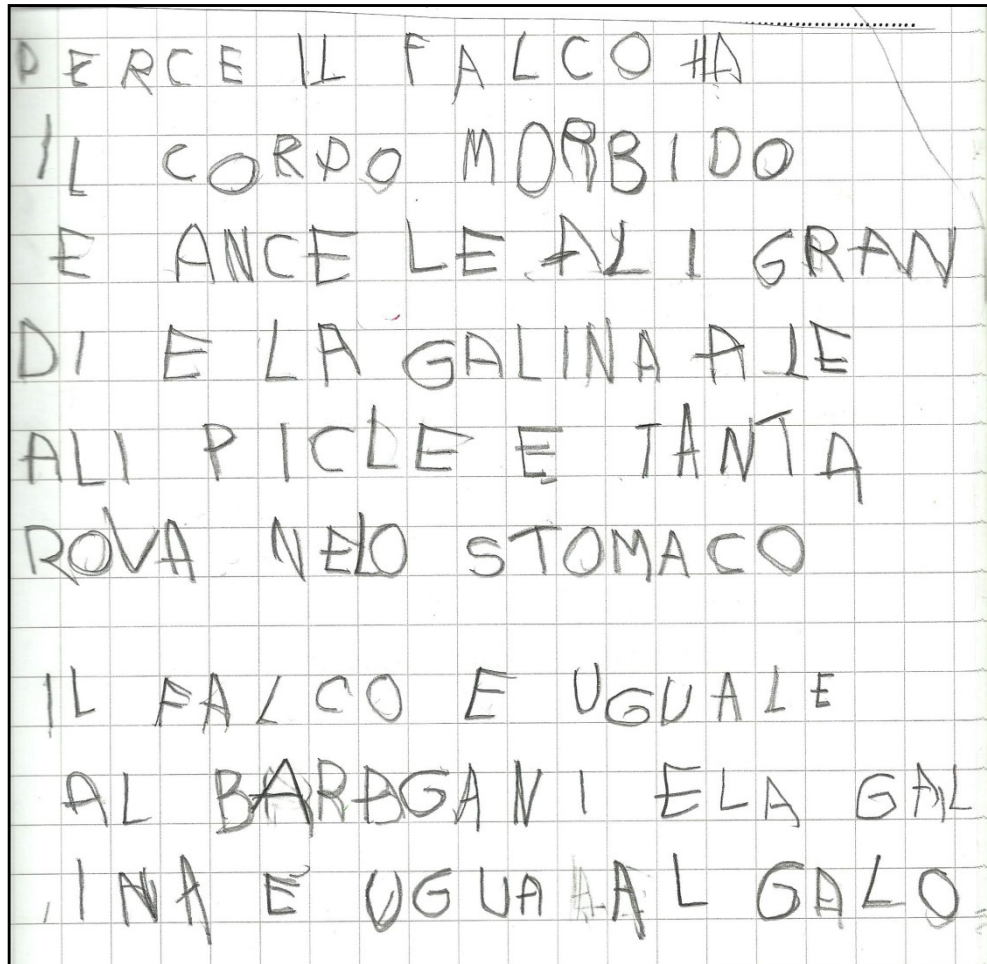 PERCE IL FALCO HA
IL CORPO MORBIDO
E ANCE LE ALI GRAN
DI E LA GALINA A LE
ALI PICLE E TANTA
ROVA NELO STOMACO
IL FALCO E UGUALE
AL BARBGANI E LA GAL
INA E UGUA AL GALO